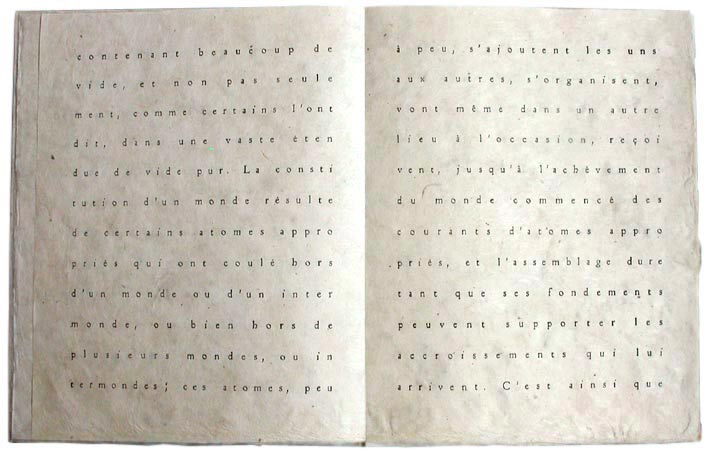 contenant beaucoup de
vide, et non pas seule
ment, comme certains l'ont
dit, dans une vaste éten
due de vide pur. La consti
tution d'un monde résulte
de certains atomes appro
priés qui ont coulé hors
d'un monde ou d'un inter
monde, ou bien hors de
plusieurs mondes, ou in
termondes; ces atomes, peu
à peu, s'ajoutent les uns
aux autres, s'organisent,
vont même dans un autre
lieu à l'occasion, reçoi
vent, jusqu'à l'achèvement
du monde commencé des
courants d'atomes appro
priés, et l'assemblage dure
tant que ses fondements
peuvent supporter les
accroissements qui lui
arrivent. C'est ainsi que